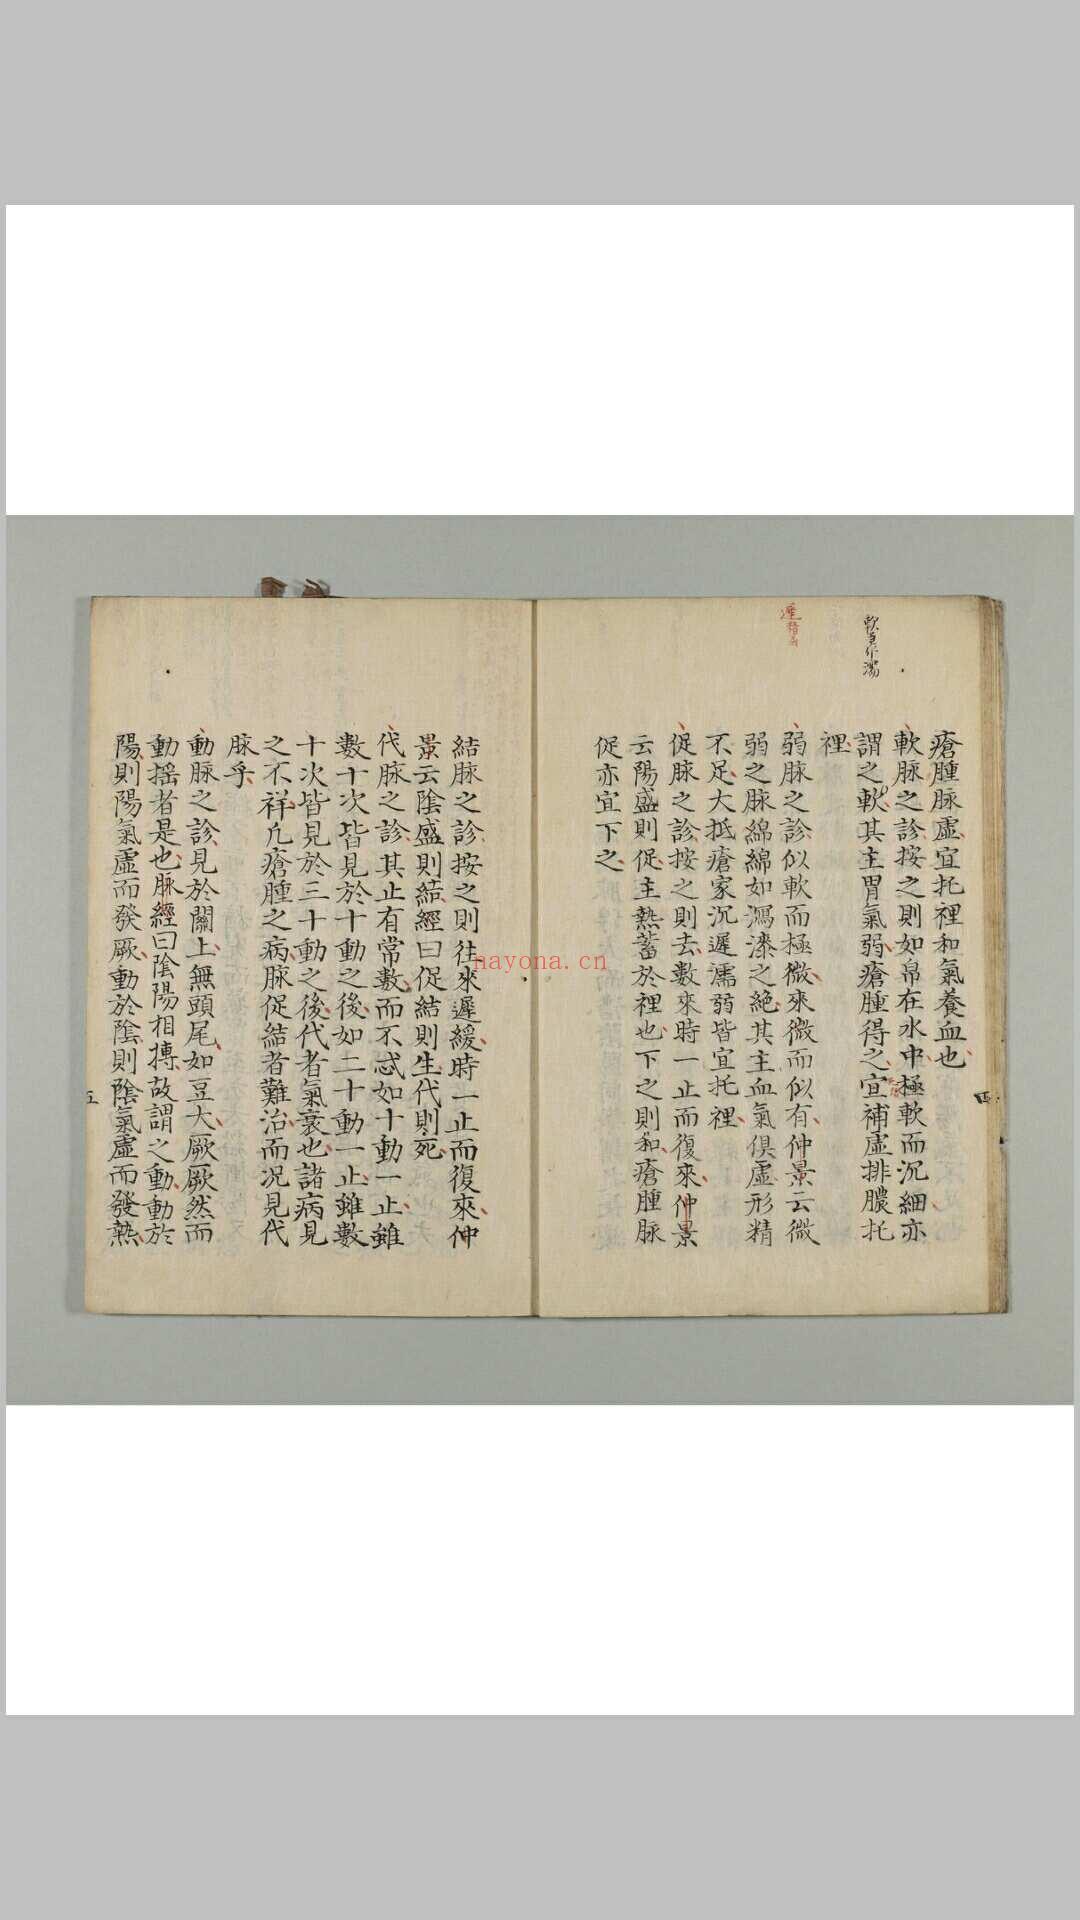 軟當作濡
瘡腫脉虛宜托裡和氣養血也
軟脉之診按之則如帛在水中極軟而沉細亦
謂之軟其主胃氣弱瘡腫得之宜補虛排膿托
裡
弱脉之診似軟而極微來微而似有仲景云微
弱之脉綿綿如瀉漆之絶其主血氣俱虛形精
不足大抵瘡家沉遲濡弱皆宜托裡
促脉之診按之則去數來時一止而復來仲景
云陽盛則促主熱蓄於裡也下之則和瘡腫脉
促亦宜下之
四
結脉之診按之則往來遲緩時一止而復來仲
景云陰盛則結經曰促結則生代則死
代脉之診其止有常數而不忒如十動一止雖
數十次皆見於十動之後如二十動一止雖數
十次皆見於三十動之後代者氣衰也諸病見
之不祥凡瘡腫之病脉促結者難治而况見代
脉乎
動脉之診見於關上無頭尾如豆大厥厥然而
動搖者是也脉經曰陰陽相摶故謂之動動於
陽則陽氣虛而發厥動於陰則陰氣虛而發熱
五
nayona.cn